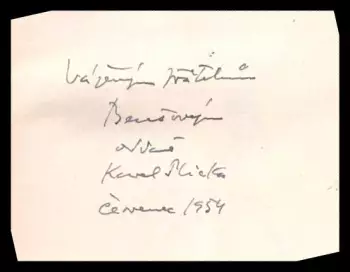 Váženým přátelům
Benešovým
oddaně
Karel Plicka
červenec 1954